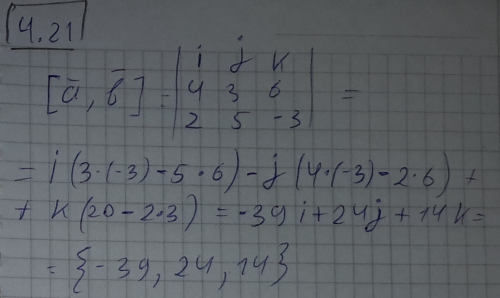 4.21
i j k
[a̅, b̅] = | 4 3 6 | =
2 5 -3
= i (3·(-3) - 5·6) - j (4·(-3) - 2·6) +
+ k (20 - 2·3) = -39 i + 24j + 14 k =
= {-39, 24, 14}